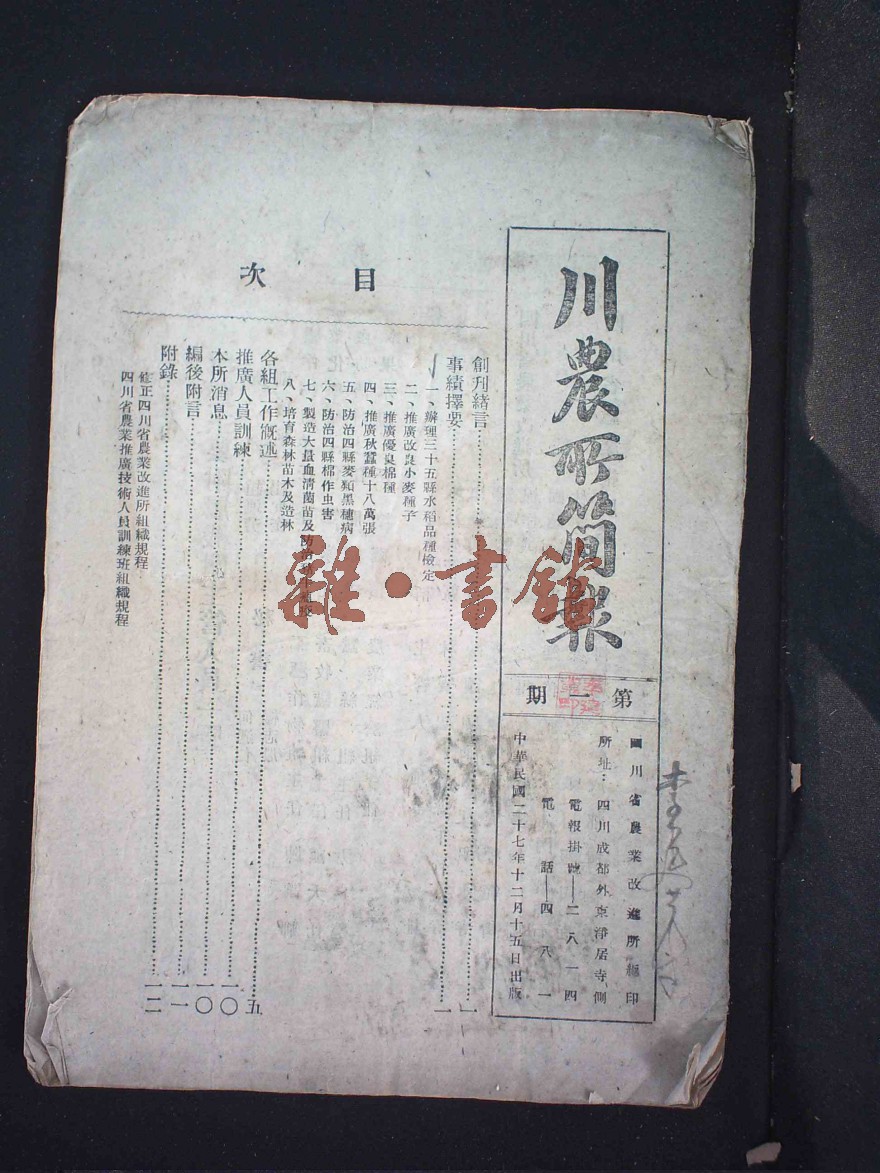 川農所簡報
第一期
四川省農業改進所編印
所址：四川成都外東淨居寺側
電報掛號——二八一四
電話——四八一
中華民國二十七年十二月十五日出版
目次
創刊緒言……一
事績擇要……一
一、辦理三十五縣水稻品種檢定
二、推廣改良小麥種子
三、推廣優良棉種
四、推廣秋蠶種十八萬張
五、防治四縣麥類黑穗病
六、防治四縣棉作虫害
七、製造大量血清菌苗及防治
八、培育森林苗木及造林
各組工作概述……五
推廣人員訓練……一〇
本所消息……一〇
編後附言……一一
附錄……一二
修正四川省農業改進所組織規程
四川省農業推廣技術人員訓練班組織規程
雜·書館